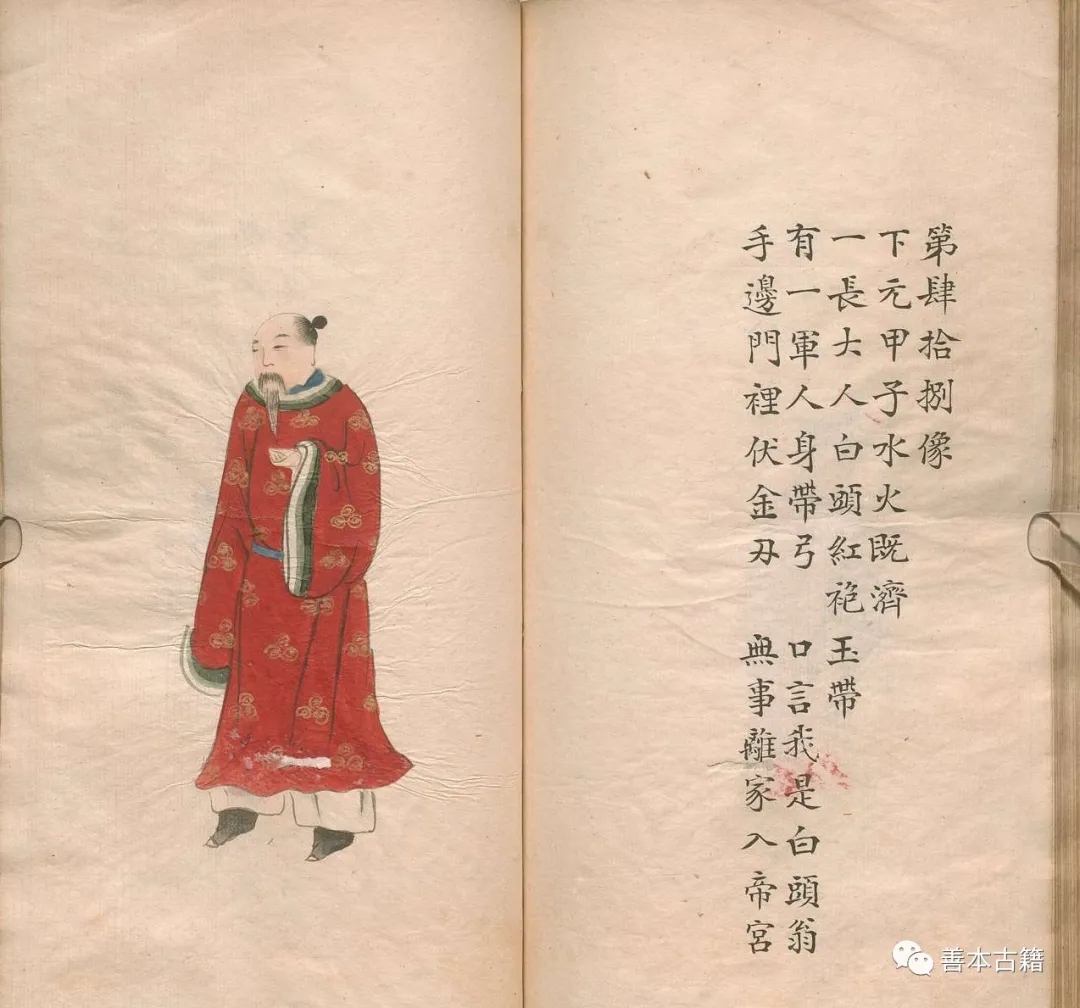 第肆拾捌像
下元甲子水火既濟
一長大人白頭紅袍 玉帶
有一軍人身帶弓 口言我是白頭翁
手邊門裡伏金刄 無事離家入帝宮
善本古籍